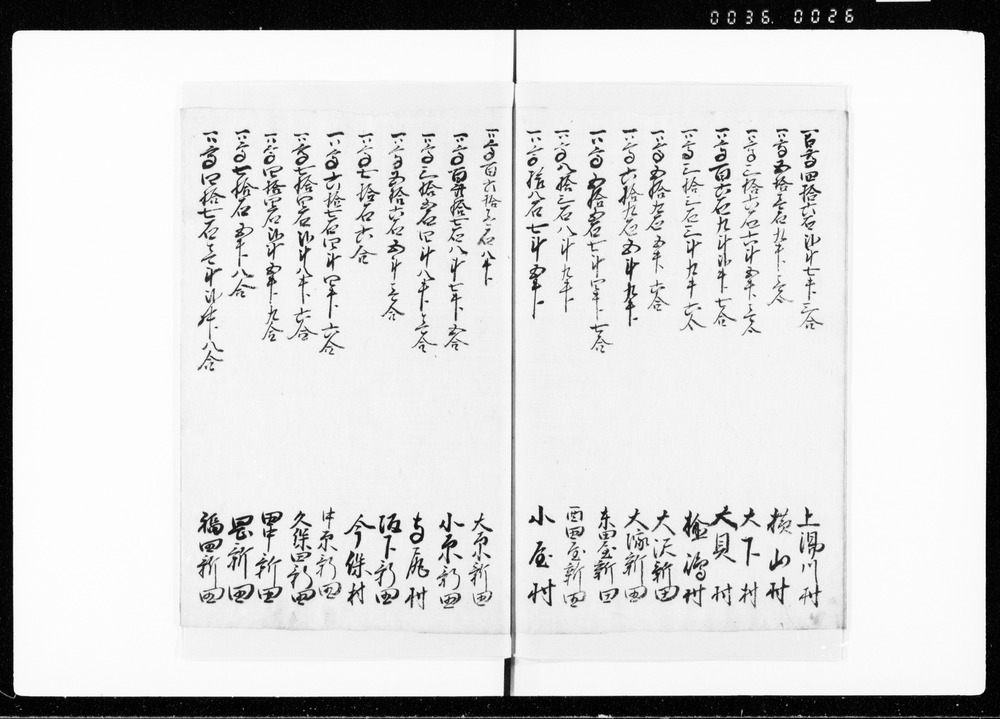 0036. 0026
一高四拾六石弐斗七升三合 上湯川村
一高五拾壱石九升三合 横山村
一高三拾六石六斗五升三合 大下村
一高百六石九斗弐升七合 大貝村
一高三拾三石三斗九升六合 楡嶋村
一高五拾九石五升六合 大沢新田
一高六拾九石五斗九升 大塚新田
一高五拾五石七斗四升七合 東田屋新田
一高八拾三石八斗九升 西田屋新田
一高拾八石七斗五升 小屋村
一高百六拾三石八升 大原新田
一高百弐拾七石八斗七升五合 小原新田
一高三拾五石四斗八升三合 寺尾村
一高五拾六石五斗三合 坂下新田
一高七拾石六合 今保村
一高六拾七石四斗四升六合 中原新田
一高七拾四石弐斗八升六合 久保田新田
一高四拾四石弐斗五升九合 田中新田
一高七拾石五升八合 岡新田
一高四拾七石壱斗弐升八合 福田新田